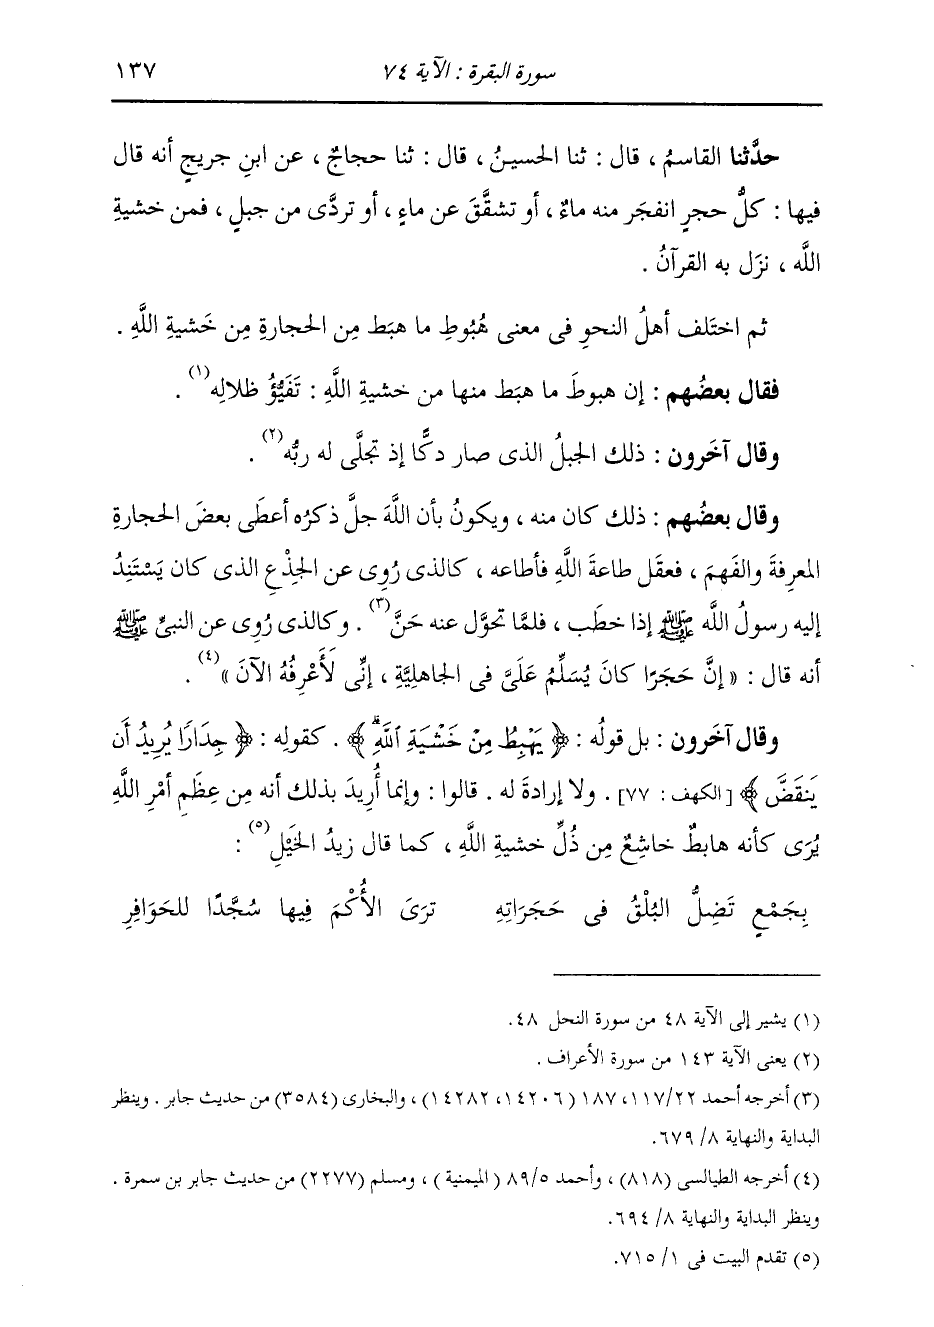 سورة البقرة : الآية ٧٤ ١٣٧
حدَّثنا القاسمُ ، قال : ثنا الحسينُ ، قال : ثنا حجاجٌ ، عن ابنِ جريجٍ أنه قال
فيها : كلُّ حجرٍ انفجَر منه ماءٌ ، أو تشقَّقَ عن ماءٍ ، أو تردَّى من جبلٍ ، فمن خشيةِ
اللَّه ، نزَل به القرآنُ .
ثم اختَلف أهلُ النحوِ فى معنى هُبُوطِ ما هبَط مِن الحجارةِ مِن خَشيةِ اللَّهِ .
فقال بعضُهم : إن هبوطَ ما هبَط منها من خشيةِ اللَّهِ : تَفَيُّؤُ ظلالِه(١) .
وقال آخَرون : ذلك الجبلُ الذى صار دكًّا إذ تجلَّى له ربُّه(٢) .
وقال بعضُهم : ذلك كان منه ، ويكونُ بأن اللَّهَ جلَّ ذكرُه أعطَى بعضَ الحجارةِ
المعرِفةَ والفَهمَ ، فعقَل طاعةَ اللَّهِ فأطاعه ، كالذى رُوِى عن الجِذْعِ الذى كان يَسْتَنِدُ
إليه رسولُ اللَّه ﷺ إذا خطَب ، فلمَّا تحوَّل عنه حَنَّ(٣) . وكالذى رُوِى عن النبىِّ ﷺ
أنه قال : « إنَّ حَجَرًا كانَ يُسَلِّمُ عَلَىَّ فى الجاهليَّةِ ، إنِّى لَأَعْرِفُهُ الآنَ »(٤) .
وقال آخَرون : بل قولُه : ﴿ يَهْبِطُ مِنْ خَشْيَةِ ٱللَّهِۗ ﴾ . كقولِه : ﴿ جِدَارًا يُرِيدُ أَن
يَنقَضَّ ﴾ [الكهف : ٧٧] . ولا إرادةَ له . قالوا : وإنما أُرِيدَ بذلك أنه مِن عِظَمِ أمْرِ اللَّهِ
يُرَى كأنه هابطٌ خاشِعٌ مِن ذُلِّ خشيةِ اللَّهِ ، كما قال زيدُ الخَيْلِ(٥) :
بِجَمْعٍ تَضِلُّ البُلْقُ فى حَجَرَاتِهِ ترَىَ الأُكْمَ فِيها سُجَّدًا للحَوافِرِ
(١) يشير إلى الآية ٤٨ من سورة النحل ٤٨.
(٢) يعنى الآية ١٤٣ من سورة الأعراف .
(٣) أخرجه أحمد ١١٧/٢٢، ١٨٧ (١٤٢٠٦، ١٤٢٨٢) ، والبخارى (٣٥٨٤) من حديث جابر . وينظر
البداية والنهاية ٨/ ٦٧٩.
(٤) أخرجه الطيالسى (٨١٨) ، وأحمد ٨٩/٥ (الميمنية) ، ومسلم (٢٢٧٧) من حديث جابر بن سمرة .
وينظر البداية والنهاية ٨/ ٦٩٤.
(٥) تقدم البيت فى ١/ ٧١٥.